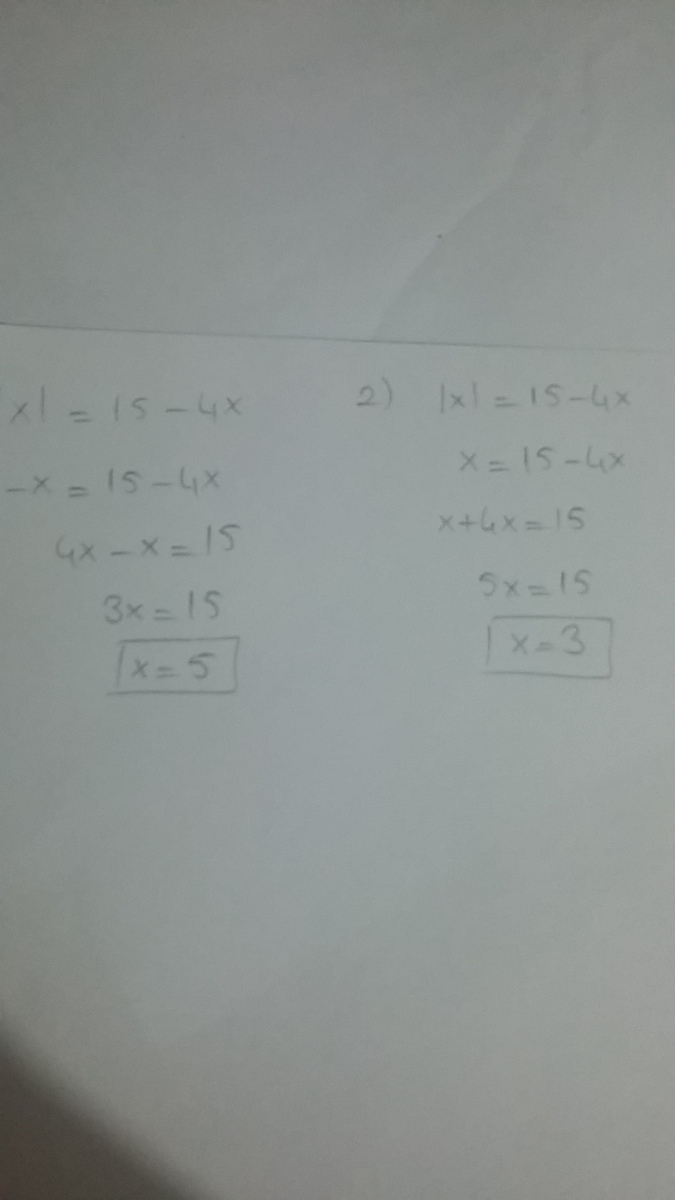 |x| = 15 - 4x
-x = 15 - 4x
4x - x = 15
3x = 15
x = 5
2) |x| = 15 - 4x
x = 15 - 4x
x + 4x = 15
5x = 15
x = 3